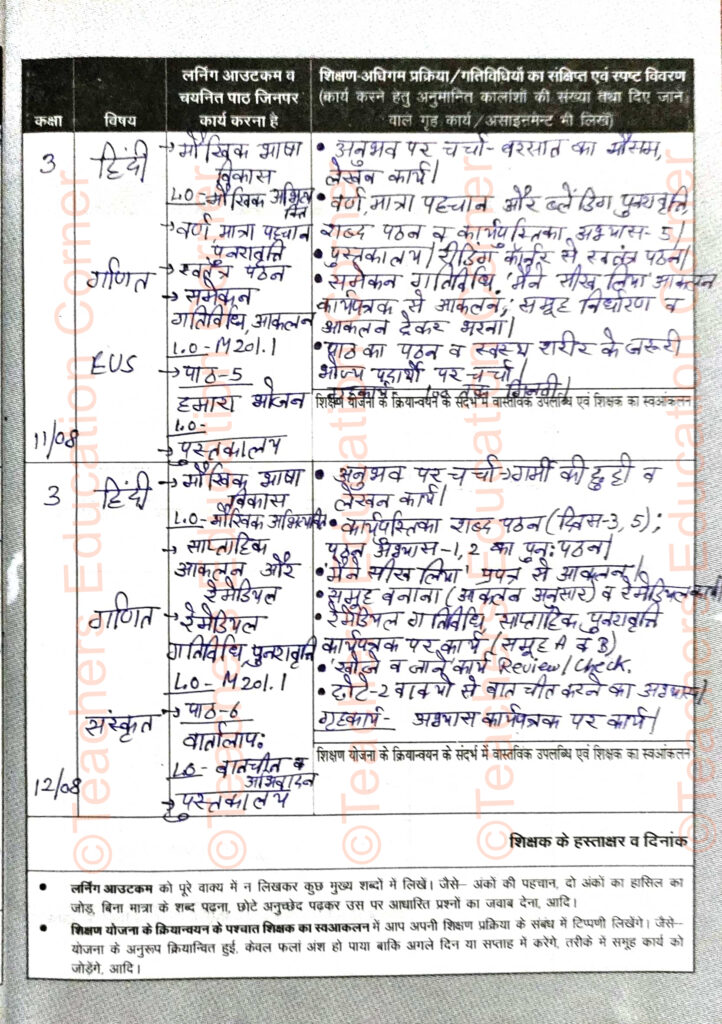 कक्षा
विषय
लर्निंग आउटकम व
चयनित पाठ जिनपर
कार्य करना है
शिक्षण-अधिगम प्रक्रिया/गतिविधियों का संक्षिप्त एवं स्पष्ट विवरण
(कार्य करने हेतु अनुमानित कालांशों की संख्या तथा दिए जाने
वाले गृह कार्य/असाइनमेंट भी लिखें)
3
हिंदी
→ मौखिक भाषा
विकास
L.O-मौखिक
→ वर्ण, मात्रा पहचान
पुनरावृत्ति
→ स्वतंत्र पठन
गणित
→ समेकन
गतिविधि, आकलन
L.O-M201.1
EUS
→ पाठ-5
हमारा भोजन
L.O-
→ पुस्तकालय
11/08
• अनुभव पर चर्चा- बरसात का मौसम,
लेखन कार्य।
• वर्ण, मात्रा पहचान और ब्लेंडिंग पुनरावृत्ति,
शब्द पठन व कार्यपुस्तिका अभ्यास-5।
• पुस्तकालय/रीडिंग कॉर्नर से स्वतंत्र पठन।
• समेकन गतिविधि, 'मैंने सीख लिया' आकलन
कार्यपत्रक से आकलन, समूह निर्धारण व
आकलन ट्रैकर भरना।
• पाठ का पठन व स्वस्थ शरीर के जरूरी
भोज्य पदार्थों पर चर्चा।
गृहकार्य-
शिक्षण योजना के क्रियान्वयन के संदर्भ में वास्तविक उपलब्धि एवं शिक्षक का स्वआंकलन
3
हिंदी
→ मौखिक भाषा
विकास
L.O-मौखिक अभिव्यक्ति
→ साप्ताहिक
आकलन और
रेमेडियल
गणित
→ रेमेडियल
गतिविधि, पुनरावृत्ति
L.O-M201.1
संस्कृत
→ पाठ-6
वार्तालापः
L.O- बातचीत व
अभिवादन
→ पुस्तकालय
12/08
• अनुभव पर चर्चा→ गर्मी की छुट्टी व
लेखन कार्य।
• कार्यपुस्तिका शब्द पठन (दिवस-3,5);
पठन अभ्यास-1,2 का पुनः पठन।
• 'मैंने सीख लिया' प्रपत्र से आकलन।
• समूह बनाना (आकलन अनुसार) व रेमेडियल कार्य।
• रेमेडियल गतिविधि, साप्ताहिक पुनरावृत्ति
कार्यपत्रक पर कार्य (समूह A व B)
• 'खोजें व जानें' कार्य Review/Check.
• छोटे-2 वाक्यों से बातचीत करने का अभ्यास।
गृहकार्य- अभ्यास कार्यपत्रक पर कार्य।
शिक्षण योजना के क्रियान्वयन के संदर्भ में वास्तविक उपलब्धि एवं शिक्षक का स्वआंकलन
शिक्षक के हस्ताक्षर व दिनांक
• लर्निंग आउटकम को पूरे वाक्य में न लिखकर कुछ मुख्य शब्दों में लिखें। जैसे– अंकों की पहचान, दो अंकों का हासिल का
जोड़, बिना मात्रा के शब्द पढ़ना, छोटे अनुच्छेद पढ़कर उस पर आधारित प्रश्नों का जवाब देना, आदि।
• शिक्षण योजना के क्रियान्वयन के पश्चात शिक्षक का स्वआकलन में आप अपनी शिक्षण प्रक्रिया के संबंध में टिप्पणी लिखेंगे। जैसे–
योजना के अनुरूप क्रियान्वित हुई, केवल फलां अंश हो पाया बाकि अगले दिन या सप्ताह में करेंगे, तरीके में समूह कार्य को
जोड़ेंगे, आदि।
©Teachers Education Corner
©Teachers Education Corner
©Teachers Education Corner